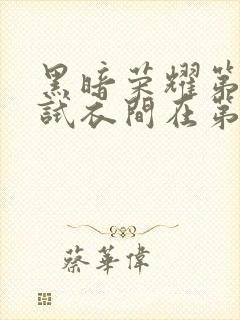 黑暗荣耀第
試衣間在第
蔡華偉